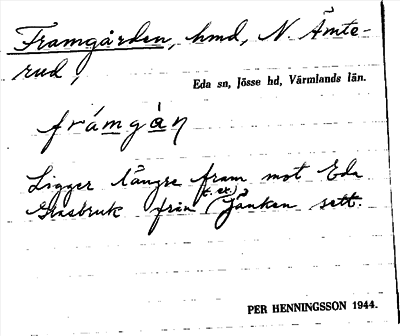 Framgården, hmd, N. Ämte-
rud,
Eda sn, Jösse hd, Värmlands län.
frámgàn
Ligger längre fram mot Eda
Glasbruk från (t. ex.) Jänken sett.
PER HENNINGSSON 1944.